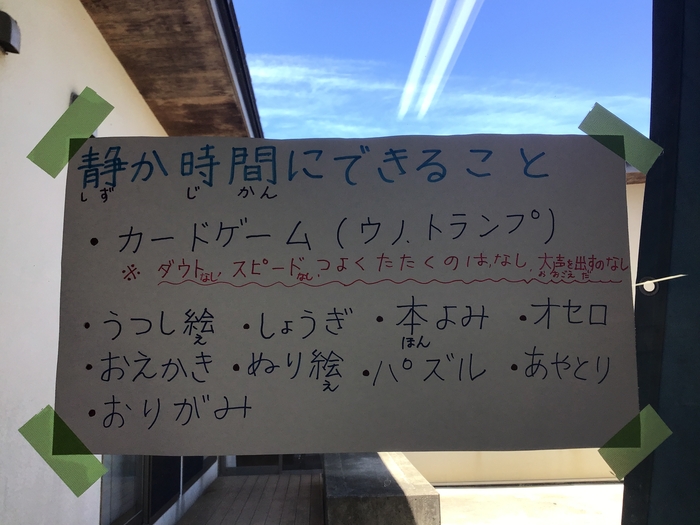 静か時間にできること
しず じかん
・カードゲーム(ウノ、トランプ)
※ ダウトなし、スピードなし、つよくたたくのは、なし、大声を出すのなし
おおごえ だ
・うつし絵 ・しょうぎ ・本よみ ・オセロ
え ほん
・おえかき ・ぬり絵 ・パズル ・あやとり
え
・おりがみ